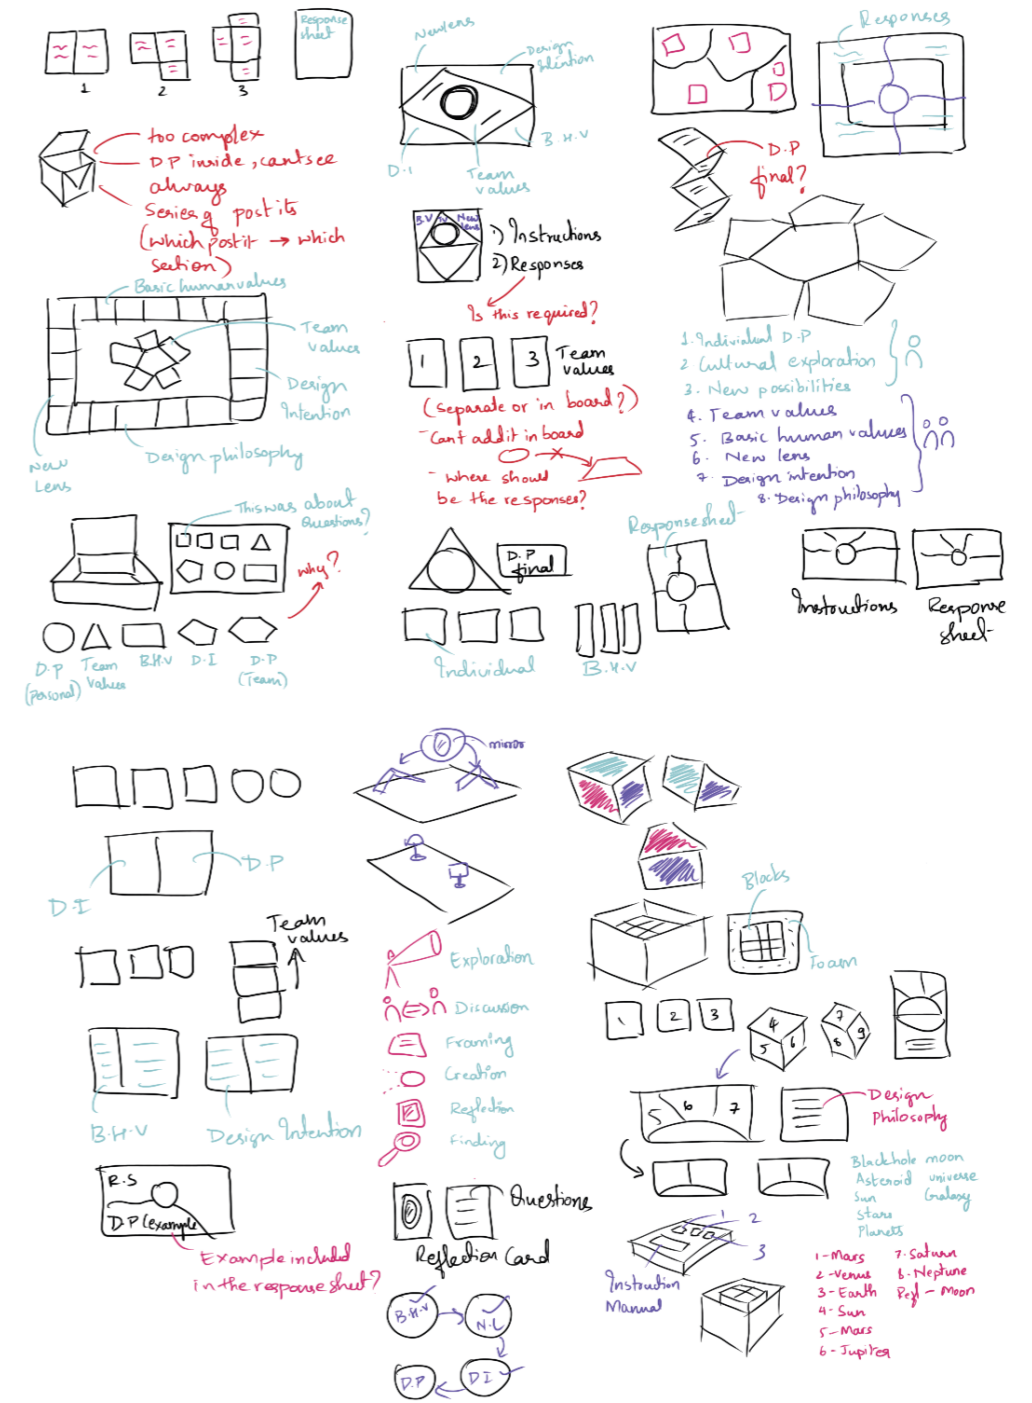 Response
sheet
1
2
3
too complex
D.P inside, cant see
always
Series of post its
(which postit → which
section)
Basic human values
Team
values
Design
Intention
Design philosophy
New
Lens
This was about
Questions?
why?
D.P
(personal)
Team
Values
B.H.V
D.I
D.P
(Team)
New lens
Design
Intention
D.I
Team
values
B.H.V
B.V
T.V
New
lens
1) Instructions
2) Responses
Is this required?
1
2
3
Team
values
(separate or in board?)
- Cant add it in board
- where should
be the responses?
D.P
final
Individual
B.H.V
Responses
D.P
final?
1. Individual D.P
2 Cultural exploration
3. New possibilities
4. Team values
5. Basic human values
6. New lens
7. Design intention
8. Design philosophy
Response sheet
Instructions
Response
sheet
D.I
D.P
Team
values
B.H.V
Design Intention
R.S
D.P (example
Example included
in the response sheet?
mirror
Exploration
Discussion
Framing
Creation
Reflection
Finding
Questions
Reflection Card
B.H.V
N.L
D.P
D I
Blocks
Foam
1
2
3
4
5
6
7
8
9
5
6
7
Design
Philosophy
Blackhole moon
Asteroid universe
Sun Galaxy
Stars
Planets
1
2
3
Instruction
Manual
1 - Mars
2 - Venus
3 - Earth
4 - Sun
5 - Mars
6 - Jupiter
7. Saturn
8. Neptune
Refl - Moon